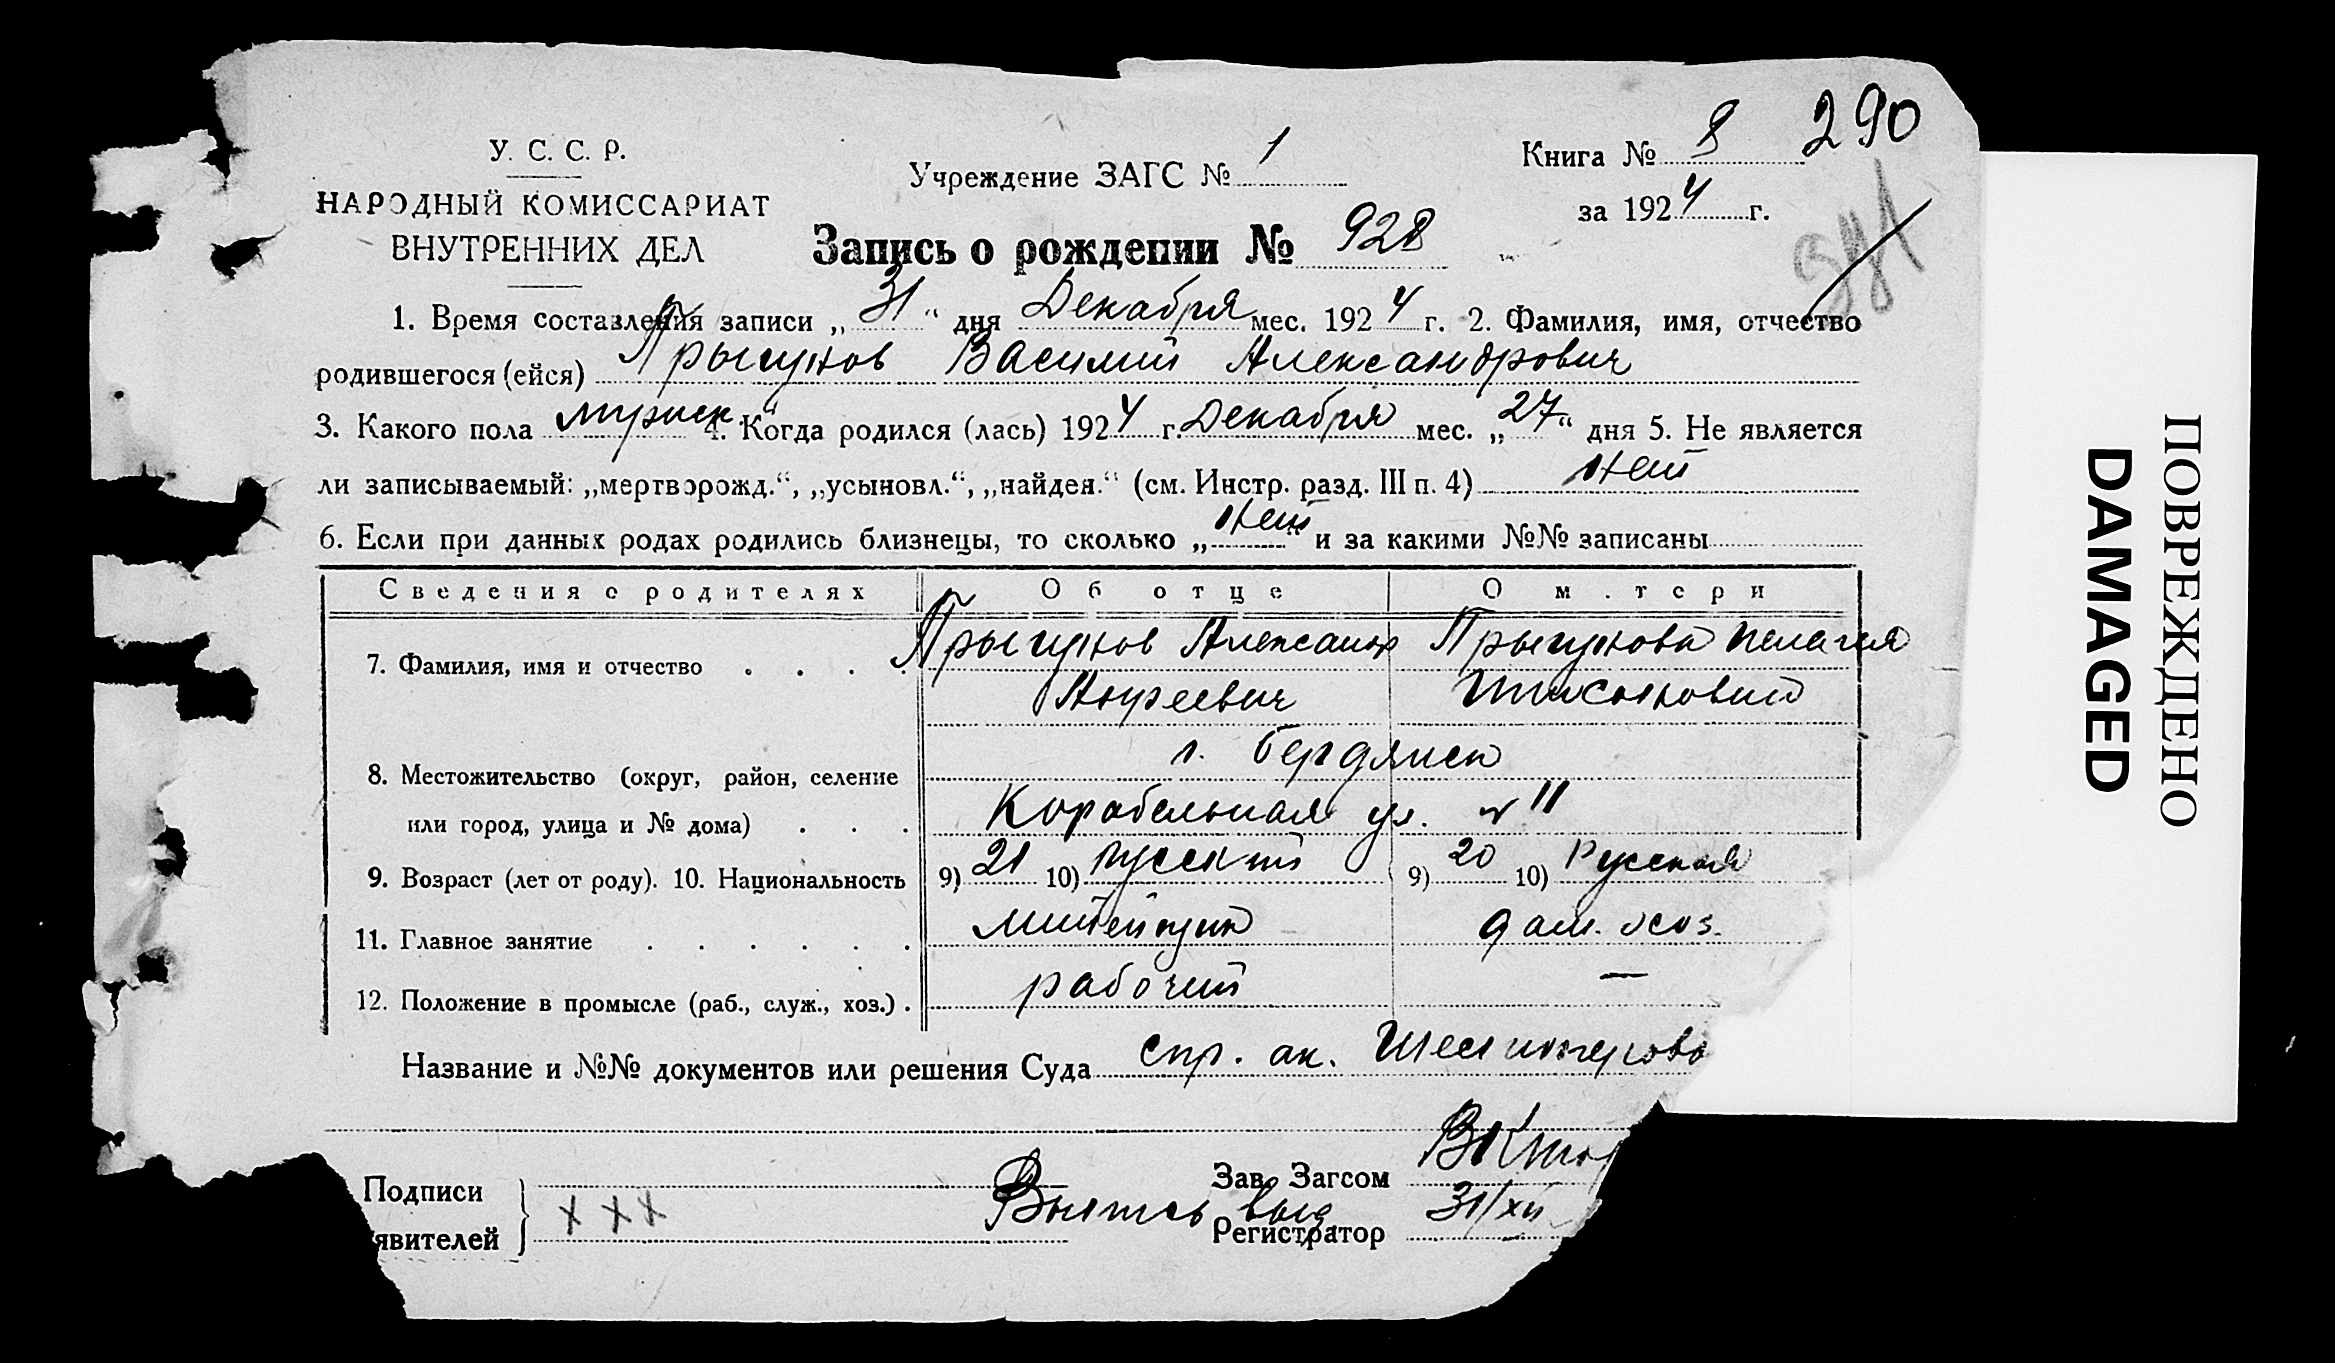 У. С. С. Р.
НАРОДНЫЙ КОМИССАРИАТ
ВНУТРЕННИХ ДЕЛ
Учреждение ЗАГС № 1
Книга № 8 290
за 1924 г.
Запись о рождении № 928
1. Время составления записи „31“ дня Декабря мес. 1924 г. 2. Фамилия, имя, отчество
родившегося (ейся) Прыгунов Василий Александрович
3. Какого пола мужск. 4. Когда родился (лась) 1924 г. Декабря мес. „27“ дня 5. Не является
ли записываемый: „мертворожд.“, „усыновл.“, „найден.“ (см. Инстр. разд. III п. 4) нет
6. Если при данных родах родились близнецы, то сколько „нет“ и за какими №№ записаны
Сведения о родителях Об отце О м.тери
7. Фамилия, имя и отчество . . . . Прыгунов Александр Прыгунова Пелагия
Андреевич
г. Бердянск
8. Местожительство (округ, район, селение
или город, улица и № дома) . . . Корабельная ул. № 11
9. Возраст (лет от роду). 10. Национальность 9) 21 10) русский 9) 20 10) Русская
11. Главное занятие . . . . . . литейщик дом. хоз.
12. Положение в промысле (раб., служ., хоз.) . рабочий —
Название и №№ документов или решения Суда спр. ак.
Подписи
явителей } + + +
Зав. Загсом
Выпись выд.
Регистратор 31/XII
ПОВРЕЖДЕНО
DAMAGED